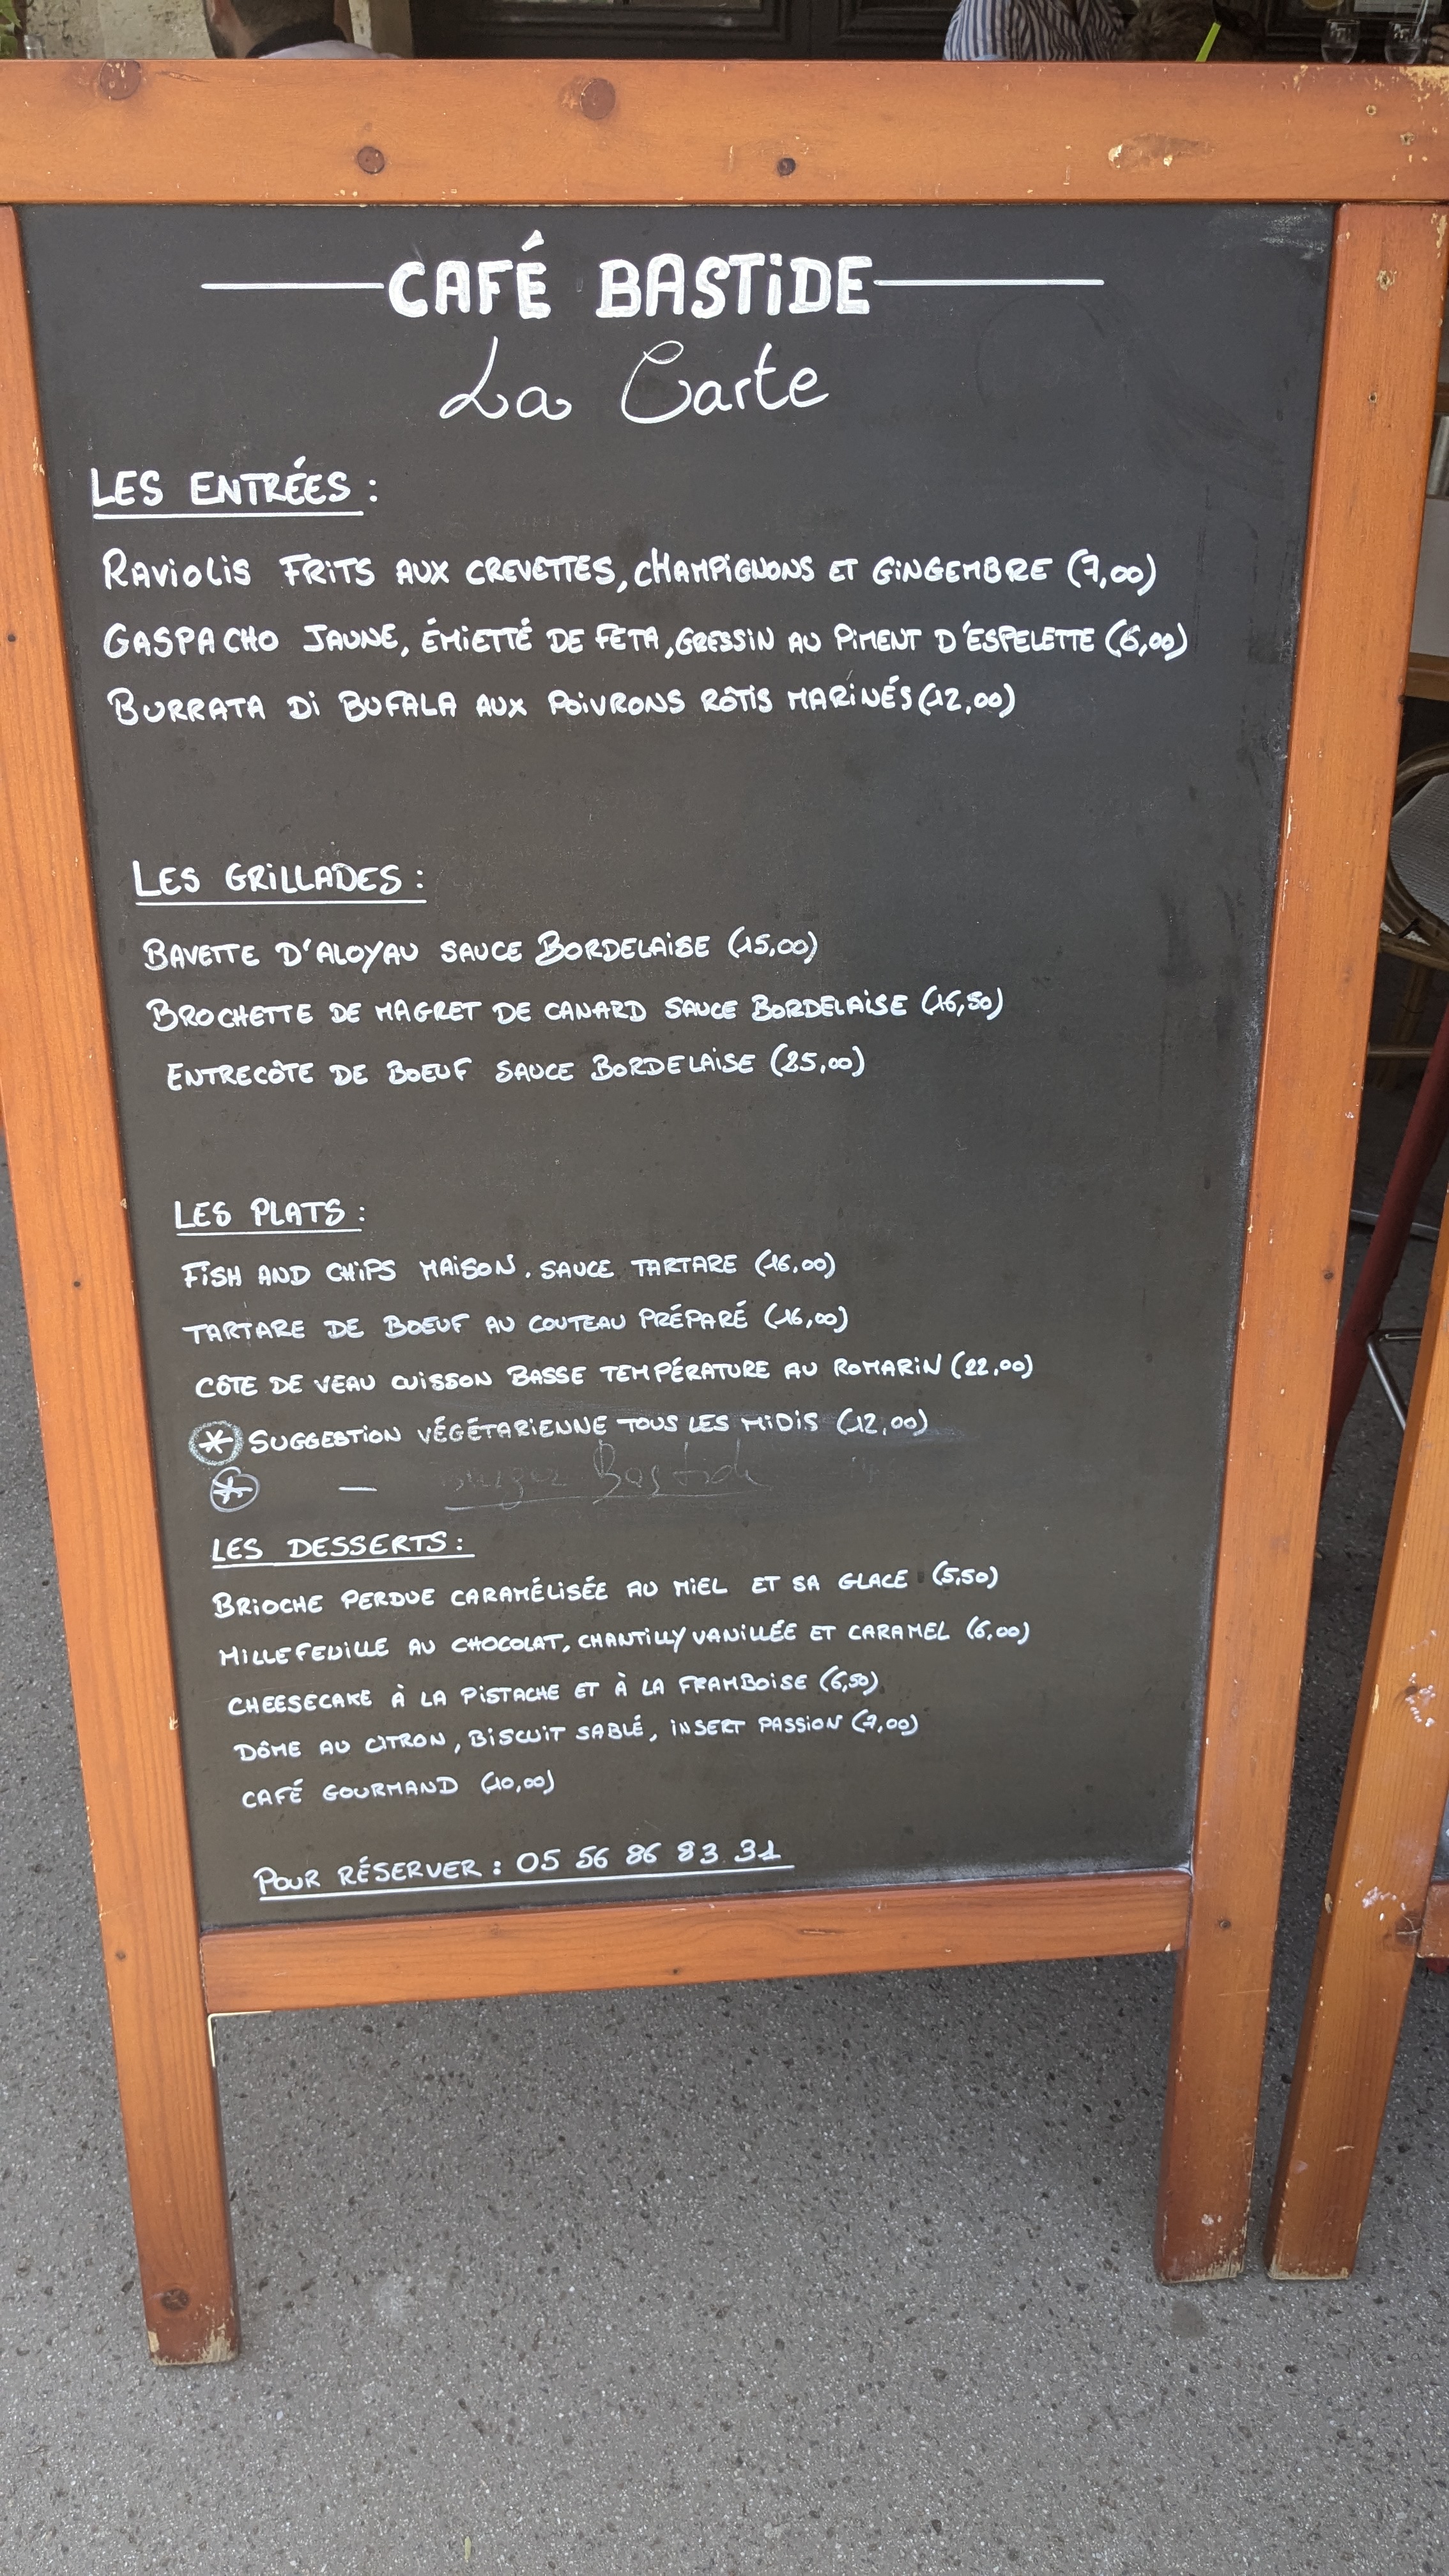 CAFÉ BASTIDE
La Carte
LES ENTRÉES :
RAVIOLIS FRITS AUX CREVETTES, CHAMPIGNONS ET GINGEMBRE (7,00)
GASPACHO JAUNE, ÉMIETTÉ DE FETA, GRESSIN AU PIMENT D'ESPELETTE (6,00)
BURRATA DI BUFALA AUX POIVRONS RÔTIS MARINÉS (12,00)
LES GRILLADES :
BAVETTE D'ALOYAU SAUCE BORDELAISE (15,00)
BROCHETTE DE MAGRET DE CANARD SAUCE BORDELAISE (16,50)
ENTRECÔTE DE BOEUF SAUCE BORDELAISE (25,00)
LES PLATS :
FISH AND CHIPS MAISON. SAUCE TARTARE (16,00)
TARTARE DE BOEUF AU COUTEAU PRÉPARÉ (16,00)
CÔTE DE VEAU CUISSON BASSE TEMPÉRATURE AU ROMARIN (22,00)
* SUGGESTION VÉGÉTARIENNE TOUS LES MIDIS (12,00)
* — Bastide
LES DESSERTS :
BRIOCHE PERDUE CARAMÉLISÉE AU MIEL ET SA GLACE (5,50)
MILLEFEUILLE AU CHOCOLAT, CHANTILLY VANILLÉE ET CARAMEL (6,00)
CHEESECAKE À LA PISTACHE ET À LA FRAMBOISE (6,50)
DÔME AU CITRON, BISCUIT SABLÉ, INSERT PASSION (7,00)
CAFÉ GOURMAND (10,00)
POUR RÉSERVER : 05 56 86 83 31